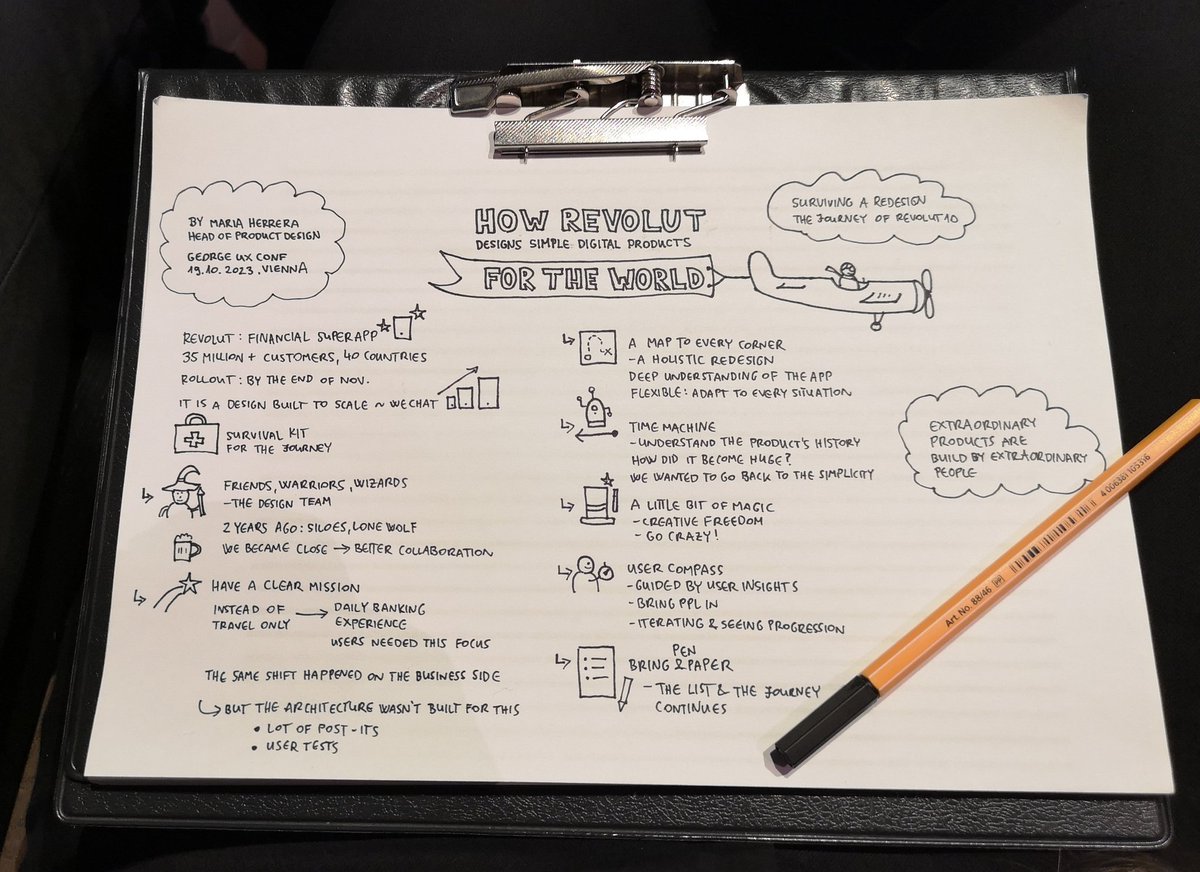 BY MARIA HERRERA
HEAD OF PRODUCT DESIGN
GEORGE UX CONF
19.10.2023, VIENNA
HOW REVOLUT
DESIGNS SIMPLE DIGITAL PRODUCTS
FOR THE WORLD
SURVIVING A REDESIGN
THE JOURNEY OF REVOLUT 10
REVOLUT: FINANCIAL SUPERAPP
35 MILLION + CUSTOMERS, 40 COUNTRIES
ROLLOUT: BY THE END OF NOV.
IT IS A DESIGN BUILT TO SCALE ~ WECHAT
SURVIVAL KIT
FOR THE JOURNEY
FRIENDS, WARRIORS, WIZARDS
- THE DESIGN TEAM
2 YEARS AGO: SILOES, LONE WOLF
WE BECAME CLOSE → BETTER COLLABORATION
HAVE A CLEAR MISSION
INSTEAD OF TRAVEL ONLY → DAILY BANKING
EXPERIENCE
USERS NEEDED THIS FOCUS
THE SAME SHIFT HAPPENED ON THE BUSINESS SIDE
↳ BUT THE ARCHITECTURE WASN'T BUILT FOR THIS
• LOT OF POST-ITS
• USER TESTS
A MAP TO EVERY CORNER
- A HOLISTIC REDESIGN
DEEP UNDERSTANDING OF THE APP
FLEXIBLE: ADAPT TO EVERY SITUATION
TIME MACHINE
- UNDERSTAND THE PRODUCT'S HISTORY
HOW DID IT BECOME HUGE?
WE WANTED TO GO BACK TO THE SIMPLICITY
A LITTLE BIT OF MAGIC
- CREATIVE FREEDOM
- GO CRAZY!
USER COMPASS
- GUIDED BY USER INSIGHTS
- BRING PPL IN
- ITERATING & SEEING PROGRESSION
PEN
BRING & PAPER
- THE LIST & THE JOURNEY
CONTINUES
EXTRAORDINARY
PRODUCTS ARE
BUILD BY EXTRAORDINARY
PEOPLE
Art. No. 88/46 PP 4 006381 105316